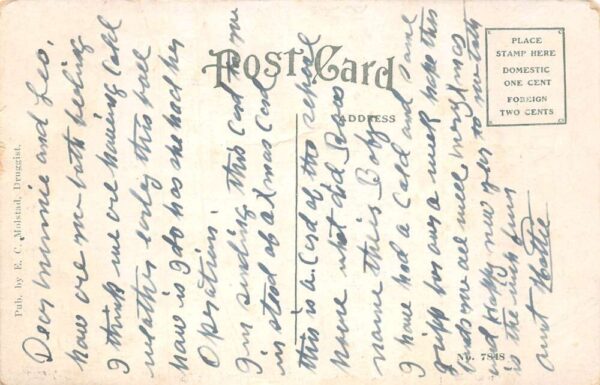 Post Card
ADDRESS
PLACE
STAMP HERE
DOMESTIC
ONE CENT
FOREIGN
TWO CENTS
Pub. by E. C. Molstad, Druggist.
No. 7848
Dear Minnie and Leo,
how are you both feeling
I think we are having cold
weather early this fall
how is has she had her
Operation.
I in sending this card to you
in stead of a Xmas Card
this is a Card of the school
house what did
name this Baby
I have had a Cold and
gripp for over a week hope this
finds you all well merry Xmas
and Happy new year to you both
is the wish from
aunt Hattie